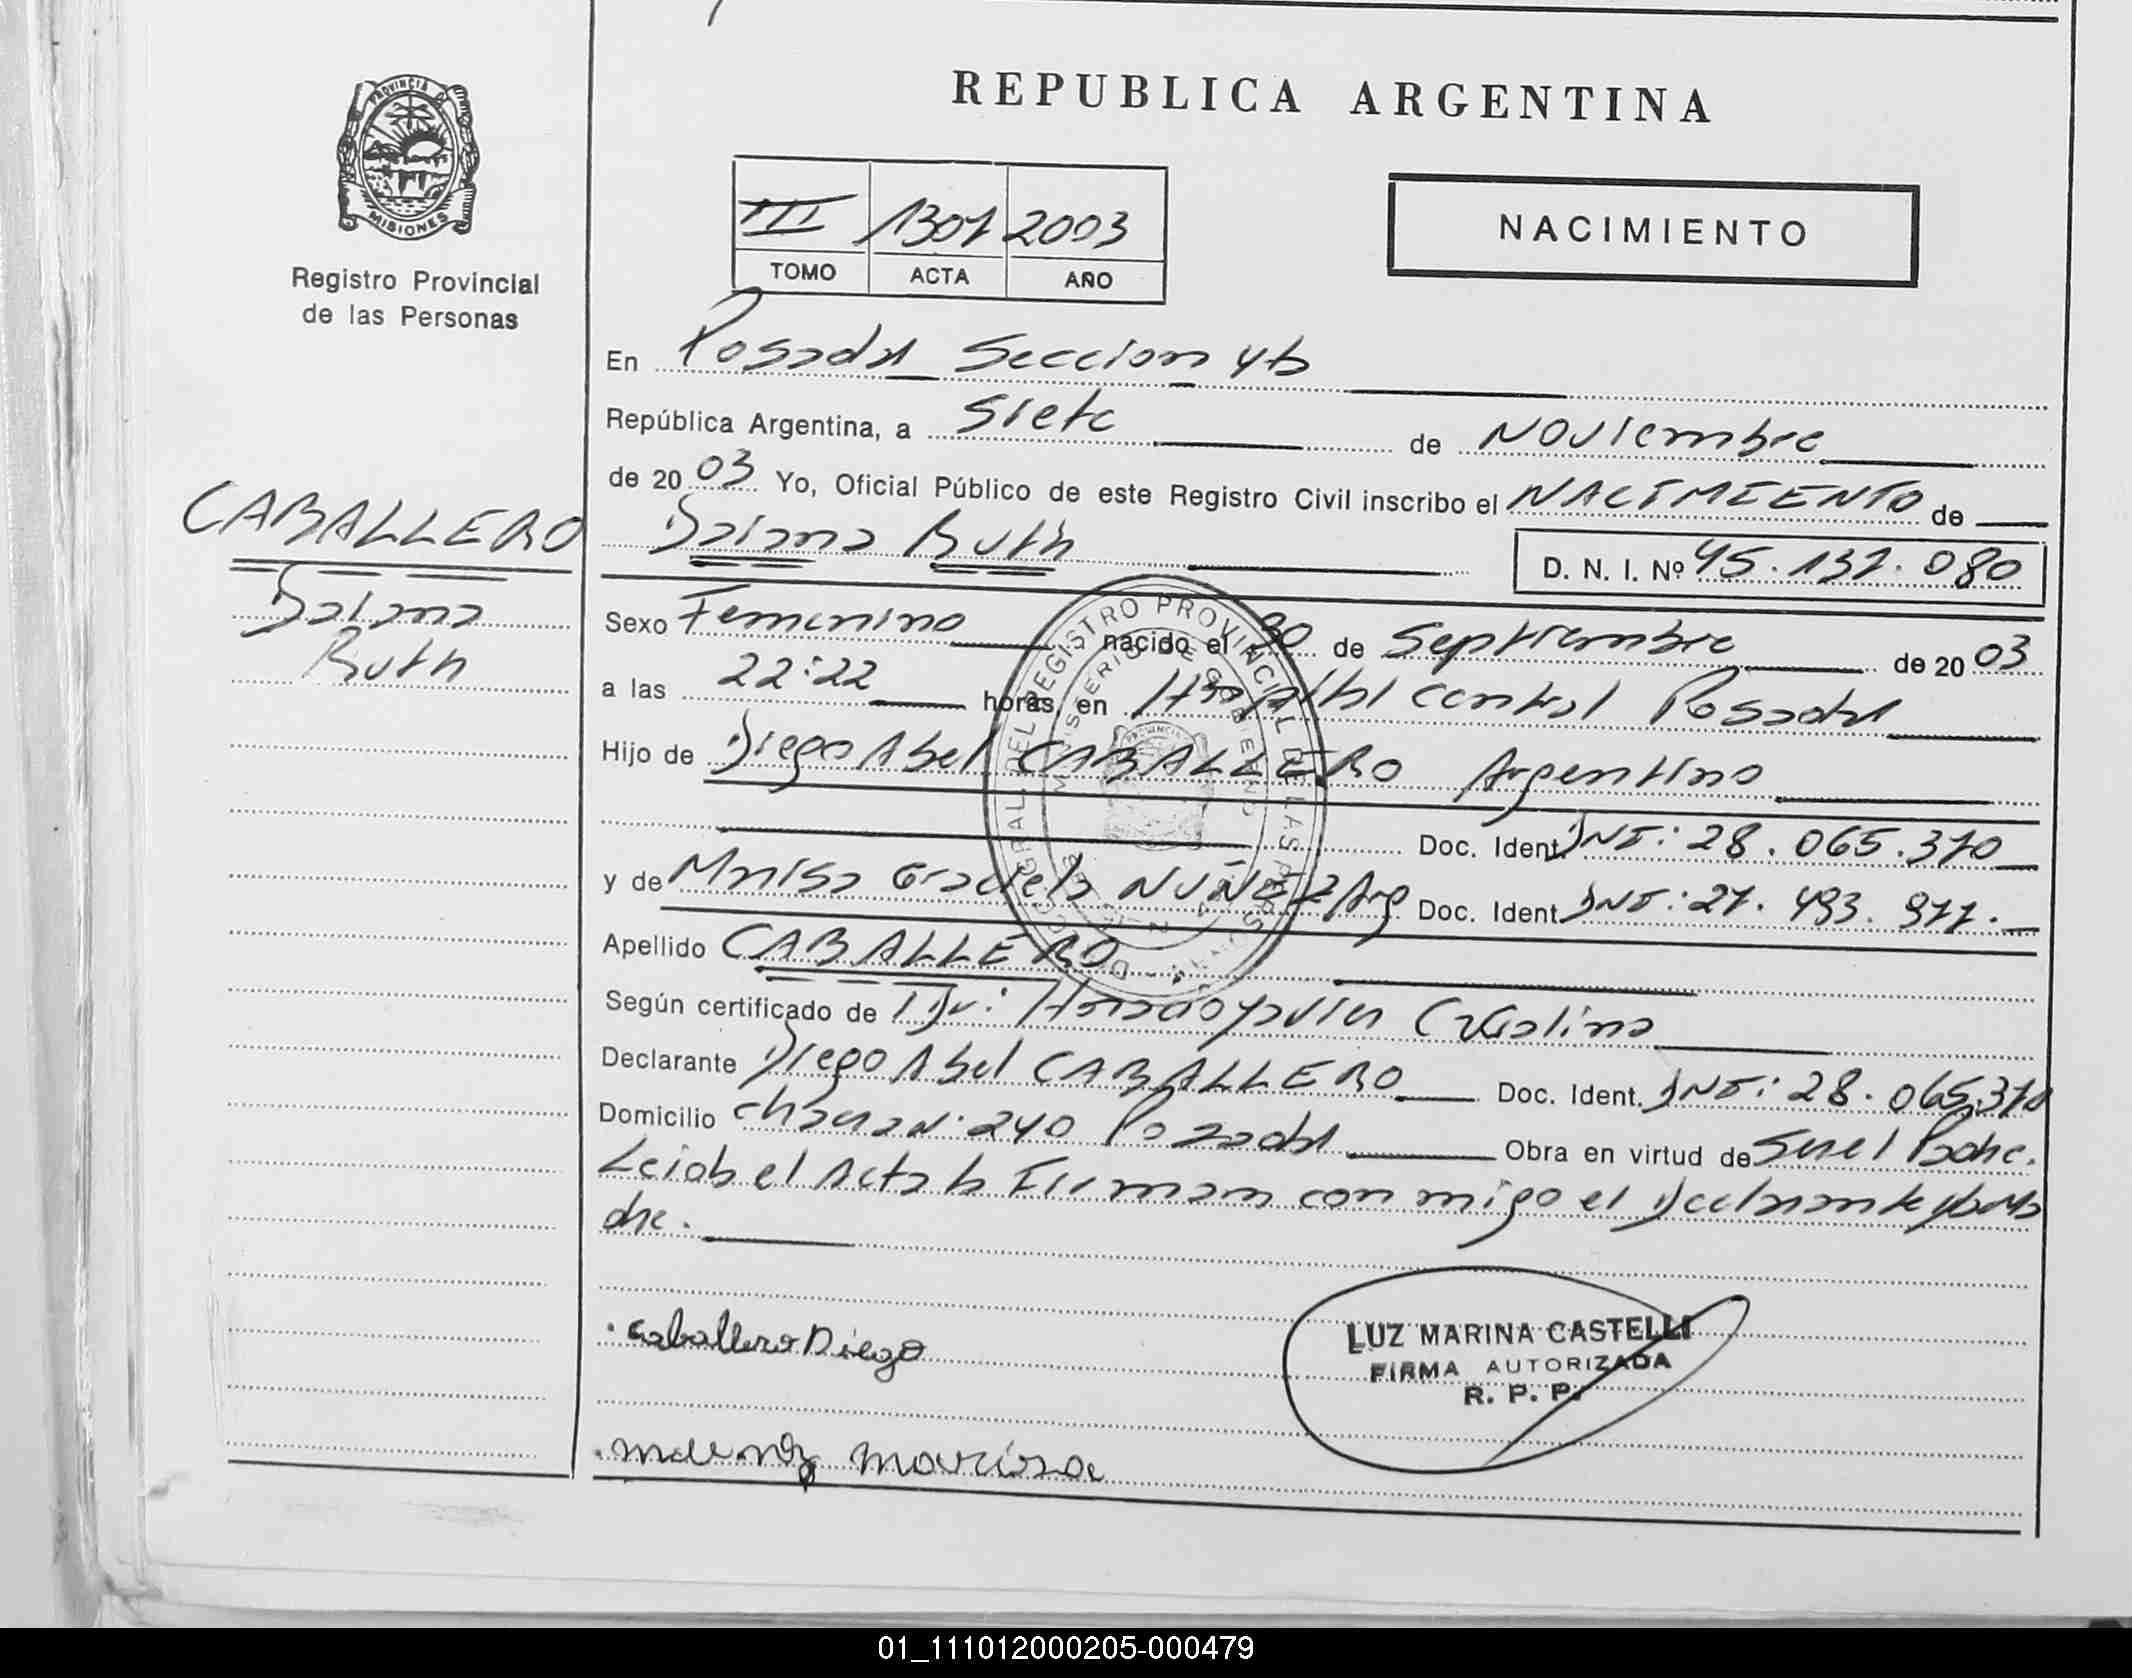 PROVINCIA DE
MISIONES
Registro Provincial
de las Personas
REPUBLICA ARGENTINA
III 1307 2003
TOMO ACTA AÑO
NACIMIENTO
En Posadas Seccion 4ta
República Argentina, a Siete de Noviembre
de 2003 Yo, Oficial Público de este Registro Civil inscribo el NACIMIENTO de
CABALLERO
Daiana
Ruth
Daiana Ruth
D. N. I. Nº 45.132.080
Sexo Femenino nacido el 30 de Septiembre de 2003
a las 22:22 horas, en Hospital Central Posadas
Hijo de Diego Abel CABALLERO Argentino
Doc. Ident. DNI: 28.065.370
y de Marisa Graciela NUÑEZ Arg Doc. Ident. DNI: 27.493.977.
Apellido CABALLERO
Según certificado de Dr: Horacio Javier
Declarante Diego Abel CABALLERO Doc. Ident. DNI: 28.065.370
Domicilio Chacra Nº 240 Posadas Obra en virtud de Ser el Padre.
Leida el Acta la Firman con migo el Declarante y la Ma
dre.
Caballero Diego
Marisa
LUZ MARINA CASTELLI
FIRMA AUTORIZADA
R. P. P.
01_111012000205-000479